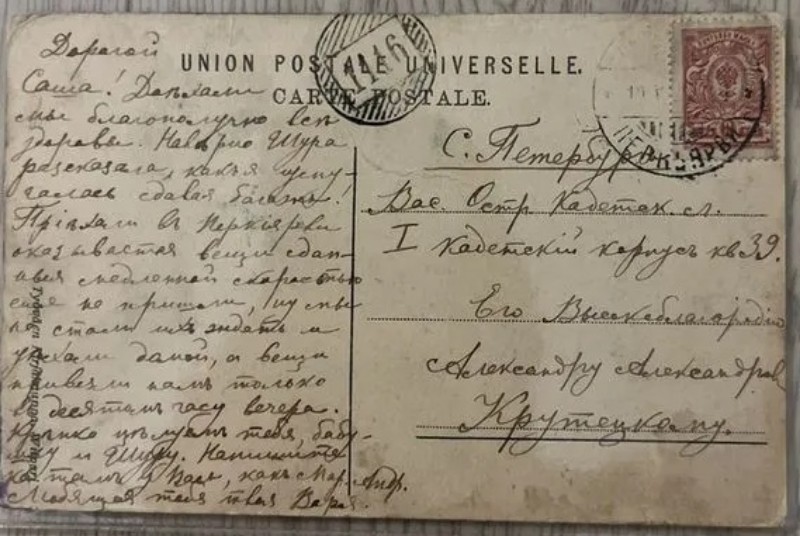 UNION POSTALE UNIVERSELLE.
CARTE POSTALE.
1116
ПЕРКЪЯРВИ
Дорогой
Саша! Доѣхали
мы благополучно всѣ
здоровы. Наверно Шура
разсказала, какъ я испу-
галась сдавая багажъ!
Пріѣхали въ Перкіярви
оказывается вещи сдан-
ныя медленной скоростью
еще не пришли, ну мы
не стали ихъ ждать и
уѣхали домой, а вещи
привезли намъ только
въ десятомъ часу вечера.
Крѣпко цѣлуемъ тебя, бабу-
шку и Шуру. Напишите
какъ тамъ у Васъ, какъ Мар. Андр.
Любящая тебя твоя Варя.
С. Петербургъ
Вас. Остр. Кадетск. л.
I кадетскій корпусъ кв 39.
Его Высокоблагородію
Александру Александров.
Крутецкому.